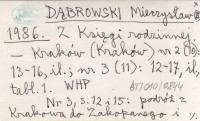 DĄBROWSKI Mieczysław
1986. Z Księgi rodzinnej.
– Kraków (Kraków) nr 2 (10):
13-16, il.; nr 3 (11): 12-17, il.,
tabl. 1. WHP
Nr 3, s. 12 i 15: podróż z
Krakowa do Zakopanego i %